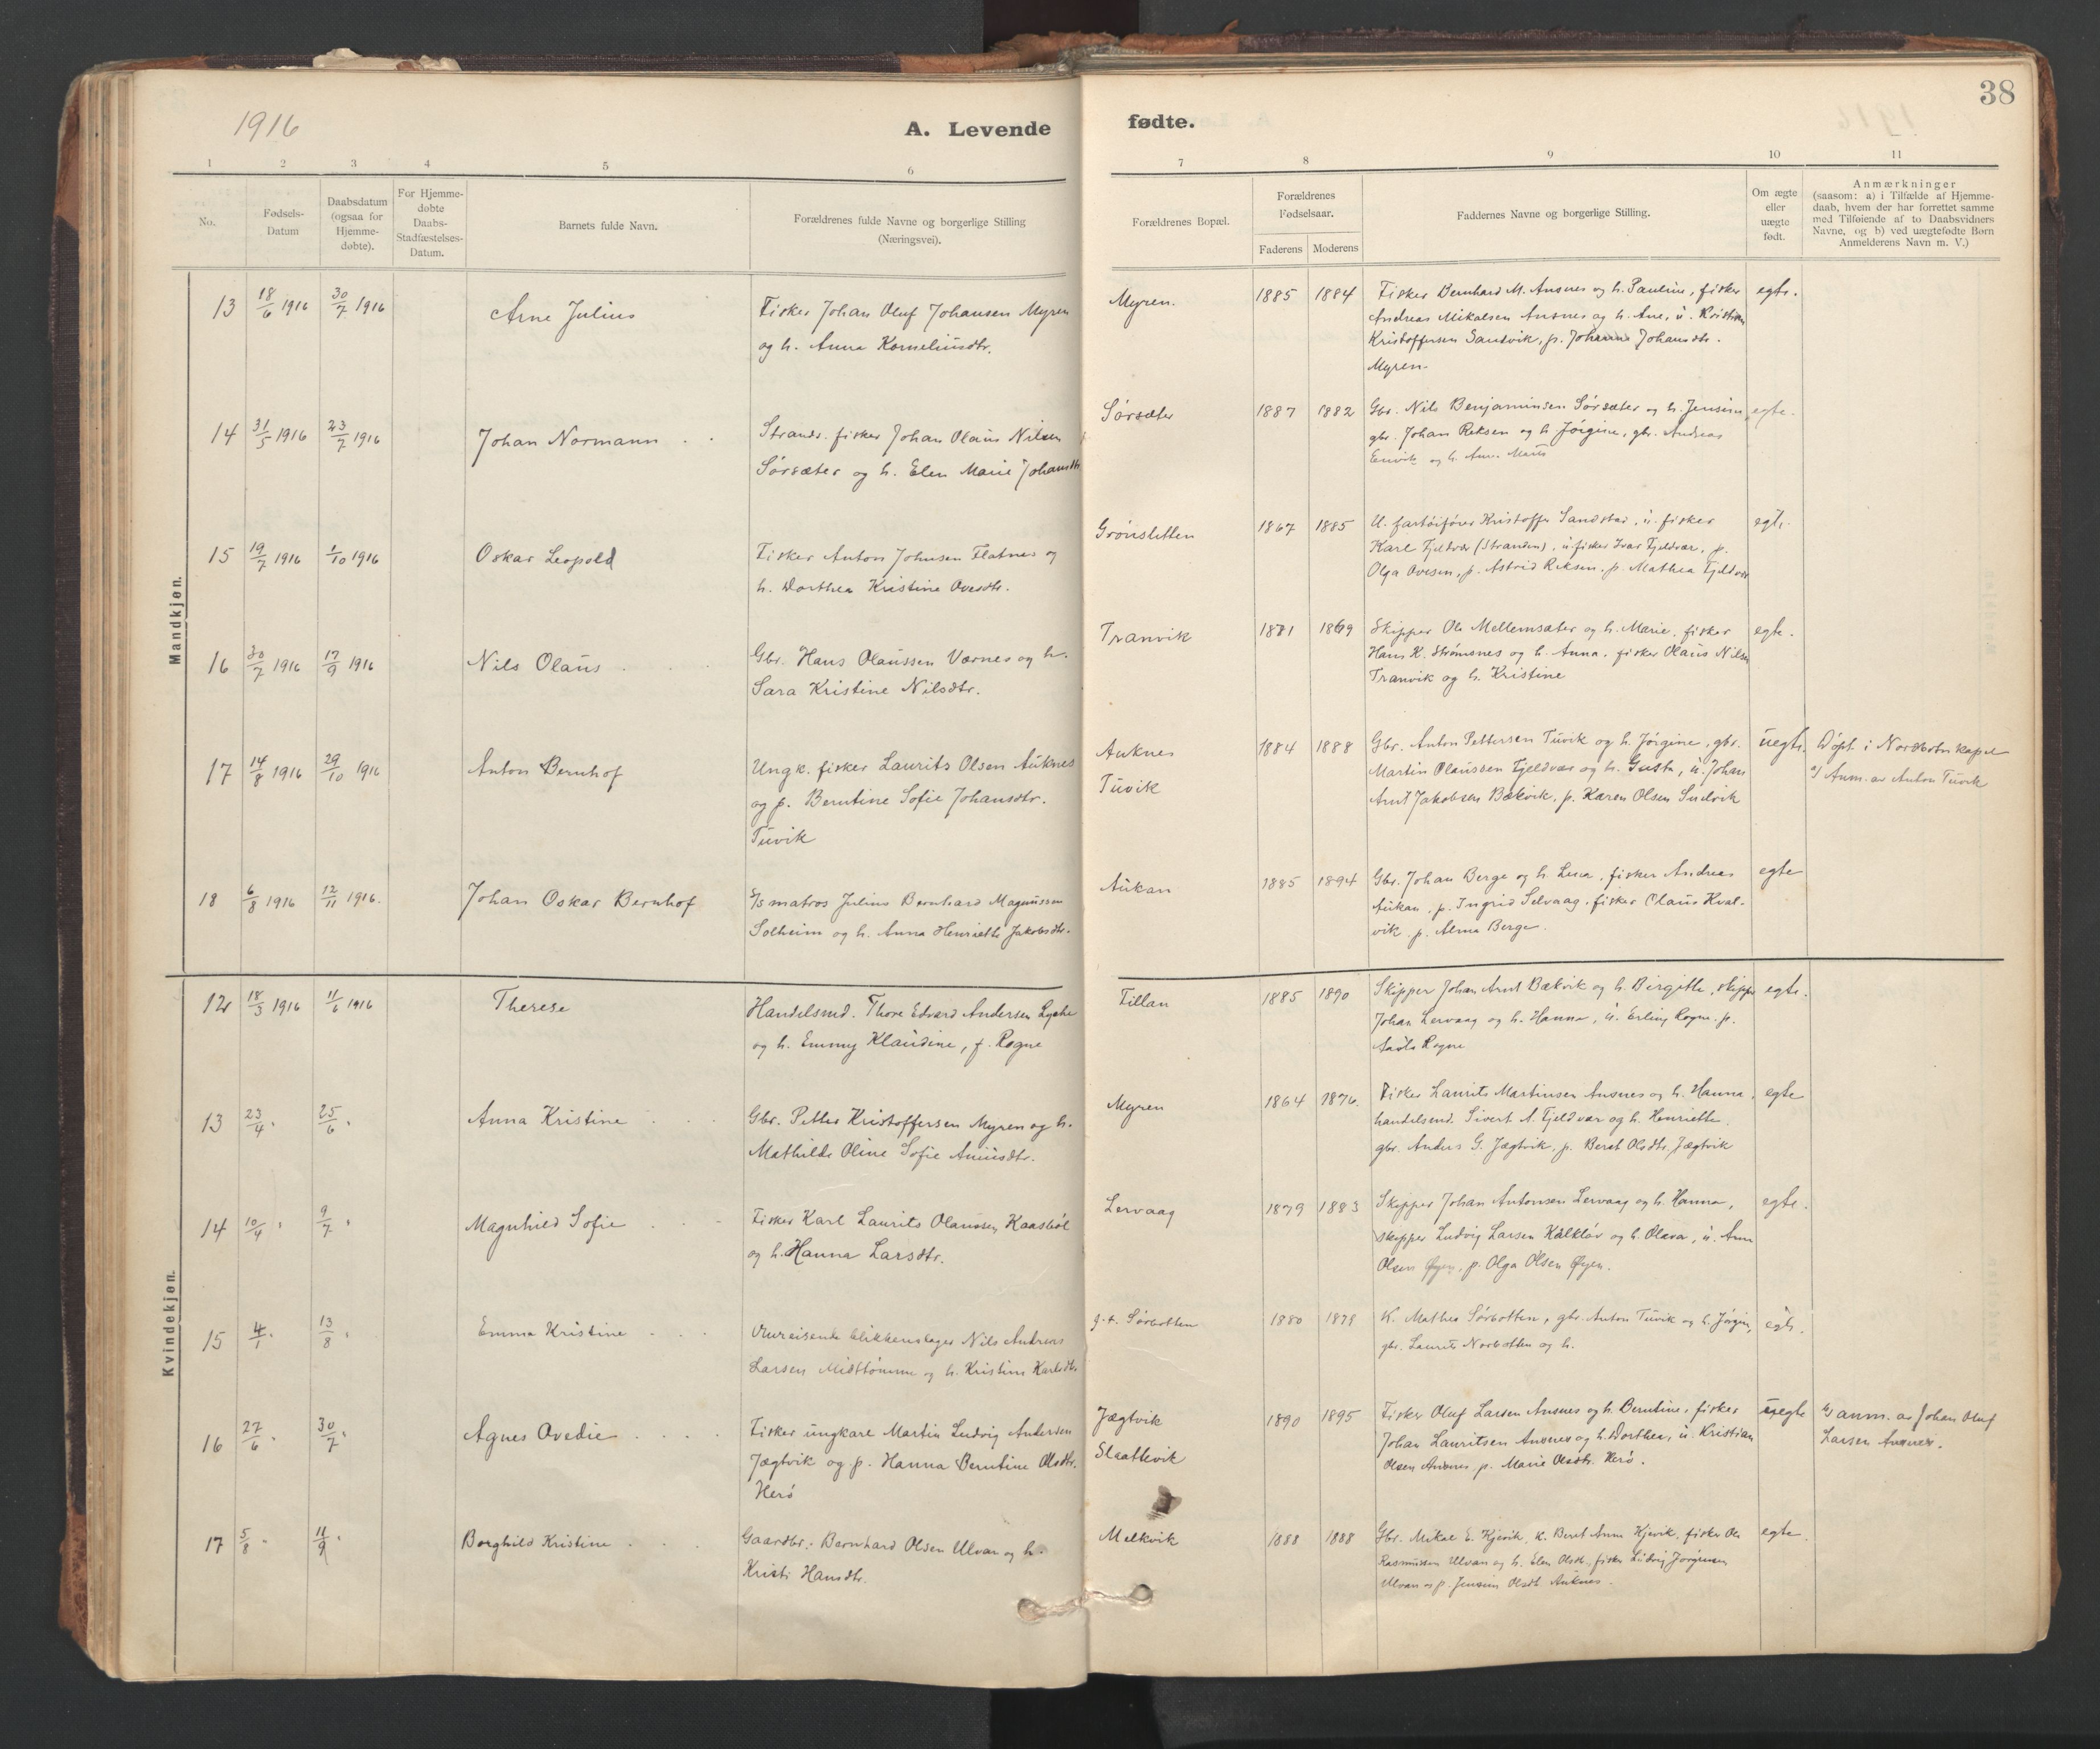 1916
A. Levende fødte.
38
1 2 3 4 5 6 7 8 9 10 11
No.
Fødsels-
Datum
Daabsdatum
(ogsaa for
Hjemme-
døbte).
For Hjemme-
døbte
Daabs-
Stadfæstelses-
Datum.
Barnets fulde Navn.
Forældrenes fulde Navne og borgerlige Stilling
(Næringsvei).
Forældrenes Bopæl.
Forældrenes
Fødselsaar.
Faderens Moderens
Faddernes Navne og borgerlige Stilling.
Om ægte
eller
uægte
født.
Anmærkninger
(saasom: a) i Tilfælde af Hjemme-
daab, hvem der har forrettet samme
med Tilføiende af to Daabsvidners
Navne, og b) ved uægtefødte Børn
Anmelderens Navn m. V.)
Mandkjøn.
13 18/6 1916 30/7 1916 Arne Julius
Fisker Johan Oluf Johansen Myren
og h. Anna Korneliusdtr.
Myren. 1885 1884
Fisker Bernhard M. Ansnes og h. Pauline, fisker
Andreas Mikalsen Ansnes og h. Ane, u. Kristian
Kristoffersen Sandvik, p. Johanna Johansdtr.
Myren.
egte.
14 31/5 1916 23/7 1916 Johan Normann
Strands. fisker Johan Olaus Nilsen
Sørsæter og h. Elen Marie Johansdtr
Sørsæter 1887 1882
Gbr. Nils Benjaminsen Sørsæter og h. Jensine
gbr. Johan Reksen og h. Jørgine, gbr. Andreas
og h. Ane. Marie
egte.
15 19/7 1916 1/10 1916 Oskar Leopold
Fisker Anton Johnsen Flatnes og
h. Dorthea Kristine Ovesdtr.
Grønsletten 1867 1885
U. fartøifører Kristoffer Sandstad, u. fisker
Karl Fjeldvær (Stranden), u. fisker Ivar Fjeldvær, p.
Olga Ovesen, p. Astrid Reksen, p. Mathea Fjeldvær
egte.
16 30/7 1916 17/9 1916 Nils Olaus
Gbr. Hans Olaussen Værnes og h.
Sara Kristine Nilsdtr.
Tranvik 1871 1869
Skipper Ole Mellemsæter og h. Marie, fisker
Hans K. Strømsnes og h. Anna, fisker Olaus Nilsen
Tranvik og h. Kristine
egte.
17 14/8 1916 29/10 1916 Anton Bernhof
Ungk. fisker Laurits Olsen Auknes
og p. Berntine Sofie Johansdtr.
Tuvik
Auknes
Tuvik
1884 1888
Gbr. Anton Pettersen Tuvik og h. Jørgine, gbr.
Martin Olaussen Fjeldvær og h. Gusta, u. Johan
Arnt Jakobsen Bækvik, p. Karen Olsen Sudvik
uegte.
Døpt i Nordbotn kapel
a) Anm. av Anton Tuvik
18 6/8 1916 12/11 1916. Johan Oskar Bernhof
S/S matros Julius Bernhard Magnussen
Solheim og h. Anna Henriette Jakobsdtr.
Aukan 1885 1894
Gbr. Johan Berge og h. Lina, fisker Andreas
Aukan, p. Ingrid Selvaag, fisker Olaus Kval-
vik, p. Alma Berge.
egte
Kvindekjøn.
12 18/3 1916 11/6 1916 Therese
Handelsmd. Thore Edvard Andersen Lyche
og h. Emmy Klaudine, f. Rogne
Fillan 1885 1890
Skipper Johan Arnt Bækvik og h. Birgitte, skipper
Johan Lervaag og h. Hanna, u. Erling Rogne, p.
Rogne
egte.
13 23/4 " 25/6 " Anna Kristine
Gbr. Petter Kristoffersen Myren og h.
Mathilde Oline Sofie
Myren 1864 1876.
Fisker Laurits Martinsen Ansnes og h. Hanna,
handelsmd. Sivert A. Fjeldvær og h. Henriette.
gbr. Anders G. Jægtvik, p. Beret Olsdtr. Jægtvik
egte
14 10/4 " 9/7 " Magnhild Sofie
Fisker Karl Laurits Olaussen Kaasbøl
og h. Hanna Larsdtr.
Lervaag 1879 1883
Skipper Johan Antonsen Lervaag og h. Hanna,
skipper Ludvig Larsen Kalkløv og h. Olava, u. Arne
Olsen Øyen, p. Olga Olsen Øyen.
egte.
15 4/1 " 13/8 " Emma Kristine
Omreisende blikkenslager Nils Andreas
Larsen Midttømme og h. Kristine Karlsdtr
g.t. Sørbotten 1880 1878
K. Mathea Sørbotten, gbr. Anton Tuvik og h. Jørgine,
gbr. Laurits Norbotten og h.
egte.
16 27/6 " 30/7 " Agnes Ovedie
Fisker ungkare Martin Ludvig Andersen
Jægtvik og p. Hanna Berntine Olsdtr.
Herø
Jægtvik
Slaattevik
1890 1895
Fisker Oluf Larsen Ansnes og h. Berntine, fisker
Johan Lauritsen Ansnes og h. Dorthea, u. Kristian
Olsen Ansnes, p. Marie Olsdtr. Herø.
uegte
anm. av Johan Oluf
Larsen Ansnes.
17 5/8 " 11/9 " Borghild Kristine
Gaardbr. Bernhard Olsen Ulvan og h.
Kristi Hansdtr.
Melkvik 1888 1888
Gbr. Mikal E. Kjervik, k. Beret Anna Kjervik, fisker Ole
Rasmussen Ulvan og h. Elen Olsdtr., fisker Ludvig Jørgensen
Ulvan og p. Jensine Olsdtr. Auknes.
egte.